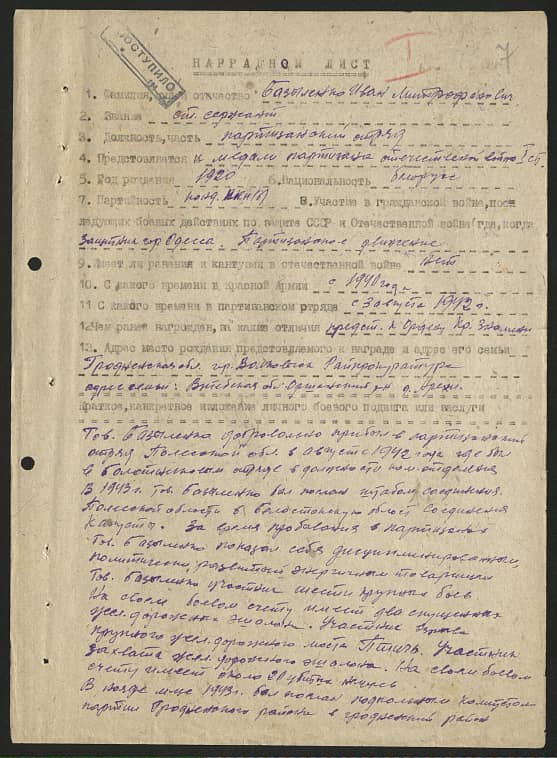 ПОСТУПИЛО
I
7
НАГРАДНОЙ ЛИСТ
1. Фамилия, имя, отчество Базыленко Иван Митрофанович
2. Звание ст. сержант
3. Должность, часть партизанский отряд
4. Представляется к медали партизана отечественной войны I ст.
5. Год рождения 1920 6. Национальность белорус
7. Партийность канд. ВКП(б) 8. Участие в гражданской войне, после
дующих боевых действиях по защите СССР и Отечественной войне (где, когда
Защитник гор. Одесса. Партизанское движение
9. Имеет ли ранения и контузии в отечественной войне нет
10. С какого времени в Красной Армии с 1940 год.
11 С какого времени в партизанском отряде с 3 августа 1942 г.
12. Чем ранее награжден, за какие отличия предст. к Ордену Кр. Знамени
13. Адрес место рождения представляемого к награде и адрес его семьи
Гродненская обл. гор. Волковыск Райпрокуратура
адрес семьи: Витебская обл. Оршанский р-н
Краткое, конкретное изложение личного боевого подвига или заслуги
Тов. Базыленко добровольно прибыл в партизанский
отряд Полесской обл. в августе 1942 года где был
в отряде в должности ком. отделения
В 1943 г. тов. Базыленко был послан штабом соединения
Полесской области в Белостокскую область Соединения
Капусты. За время пребывания в партизанах
Тов. Базыленко показал себя дисциплинированным,
политически развитым энергичным товарищем
Тов. Базыленко участник шести крупных боев
На своем боевом счету имеет два спущенных
жел. дорожных эшалона. Участник взрыва
крупного жел. дорожного моста Птичь. Участник
захвата жел. дорожного эшалона. На своем боевом
счету имеет около 20 убитых
В 1943 г. был послан подпольным комитетом
партии Гродненского района в гродненский район